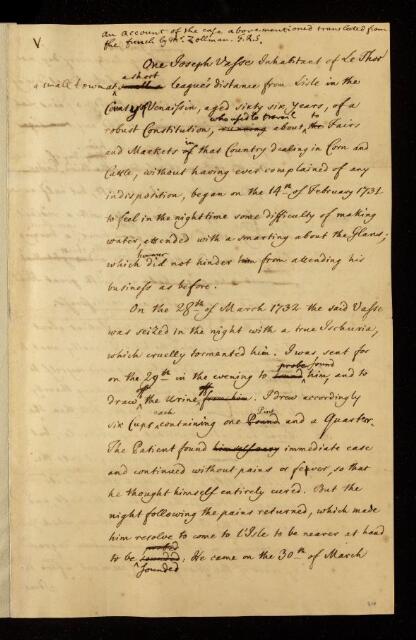 V
An account of the case abovementioned translated from
the french by Mr. Zollman. F.R.S.
One Joseph Vasse Inhabitant of Le Thor
a small town at a short league's distance from Lisle in the
County of Venaissin, aged sixty six years, of a
robust Constitution, who used to travel running about to the Fairs
and Markets in of that Country dealing in Corn and
Cattle, without having ever complained of any
indisposition, began on the 14th of February 1731
to feel in the nighttime some difficulty of making
water, attended with a smarting about the Glans;
which however did not hinder him from attending his
business as before.
On the 28th of March 1732 the said Vasse
was seized in the night with a true Ischuria,
which cruelly tormented him. I was sent for
on the 29th in the evening to probe sound him, and to
draw off the Urine off from him. I drew accordingly
six Cups each containing one Pint Pound and a Quarter.
The Patient found himself easy immediate ease
and continued without pains or feaver, so that
he thought himself entirely cured. But the
night following the pains returned, which made
him resolve to come to l'Isle to be nearer at hand
to be probed sounded sounded; He came on the 30th of March